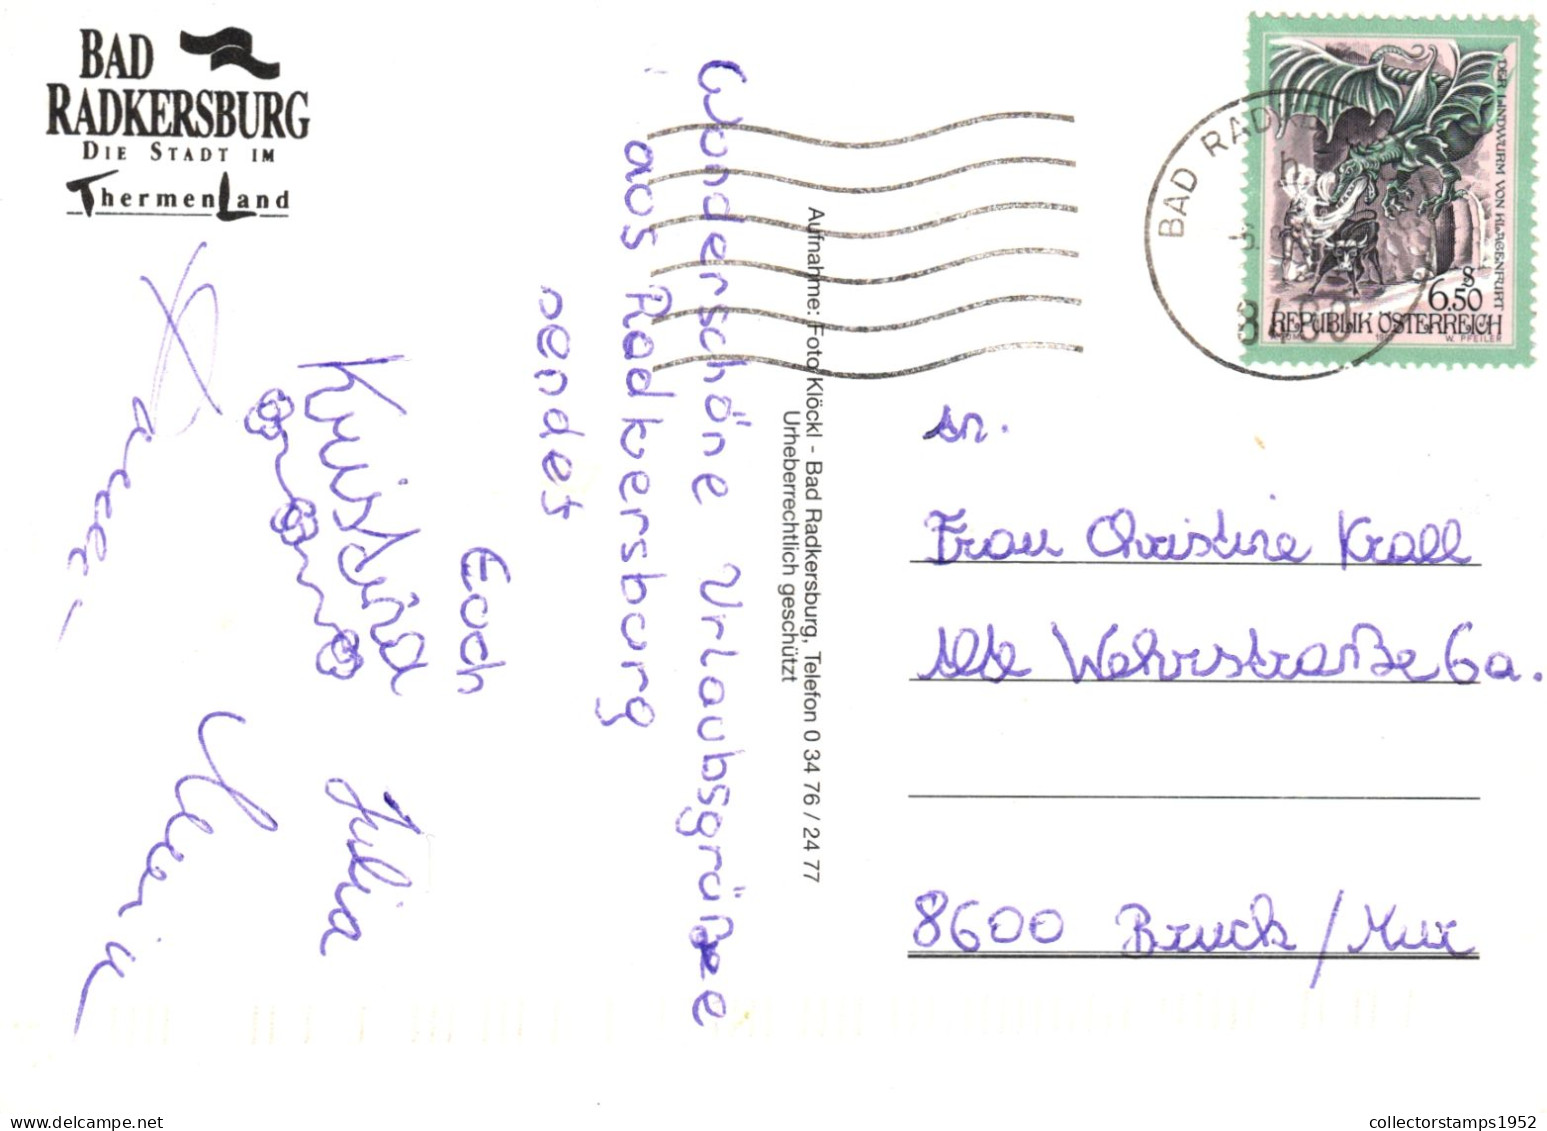 BAD
RADKERSBURG
DIE STADT IM
ThermenLand
Wunderschöne Urlaubsgrüße
aus Radkersburg
sendet
Euch
Kristina
Julia
Aufnahme: Foto Klöckl - Bad Radkersburg, Telefon 0 34 76 / 24 77
Urheberrechtlich geschützt
BAD RADKE
8480
DER LINDWURM VON KLAGENFURT
S
6.50
REPUBLIK ÖSTERREICH
W. PFEILER
An.
Frau Christine Krall
Alte Wehrstraße 6a.
8600 Bruck / Mur
collectorstamps1952